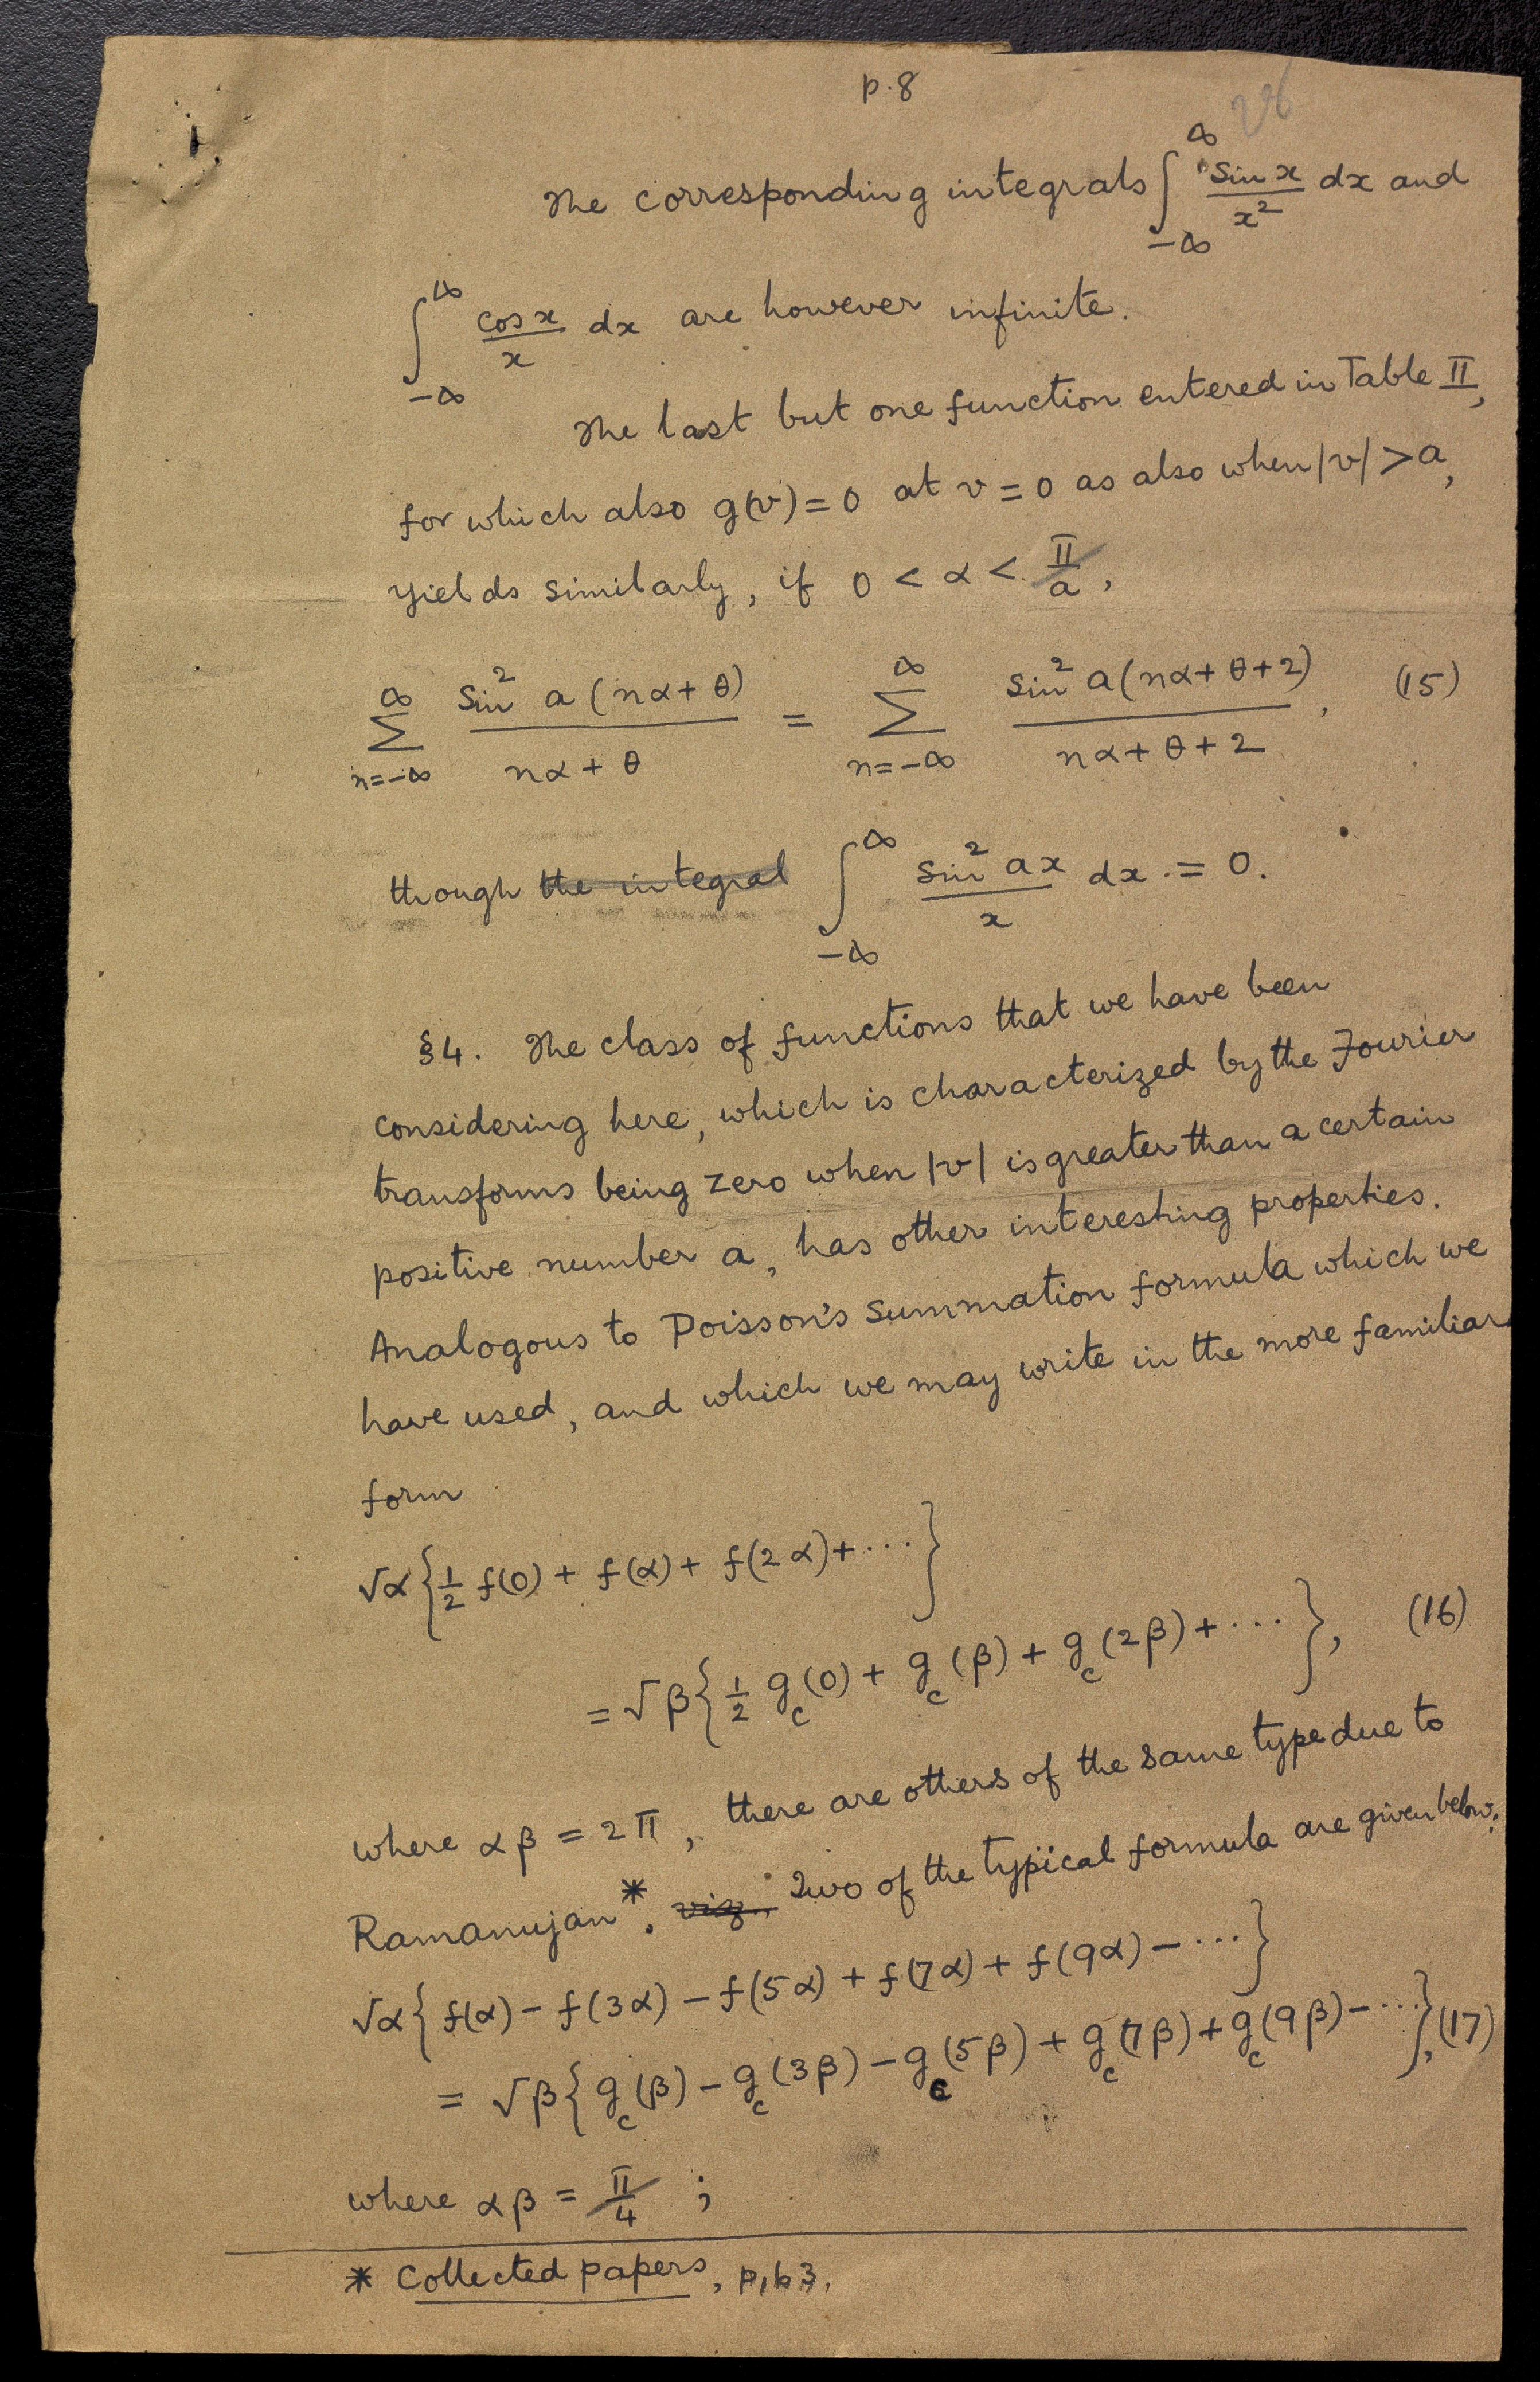 p. 8
26
The corresponding integrals ∫_{-∞}^{∞} sin x / x² dx and
∫_{-∞}^{∞} cos x / x dx are however infinite.
The last but one function entered in Table II,
for which also g(v) = 0 at v = 0 as also when |v| > a,
yields similarly, if 0 < α < π/a,
∑_{n=-∞}^{∞} sin² a(nα + θ) / (nα + θ) = ∑_{n=-∞}^{∞} sin² a(nα + θ + 2) / (nα + θ + 2), (15)
though the integral ∫_{-∞}^{∞} sin² ax / x dx = 0.
§4. The class of functions that we have been
considering here, which is characterized by the Fourier
transforms being zero when |v| is greater than a certain
positive number a, has other interesting properties.
Analogous to Poisson's summation formula which we
have used, and which we may write in the more familiar
form
√α {1/2 f(0) + f(α) + f(2α) + ···}
= √β {1/2 g_c(0) + g_c(β) + g_c(2β) + ···}, (16)
where αβ = 2π, there are others of the same type due to
Ramanujan*. viz., Two of the typical formula are given below:
√α {f(α) − f(3α) − f(5α) + f(7α) + f(9α) − ···}
= √β {g_c(β) − g_c(3β) − g_c(5β) + g_c(7β) + g_c(9β) − ···}, (17)
where αβ = π/4 ;
* Collected papers, p. 63.